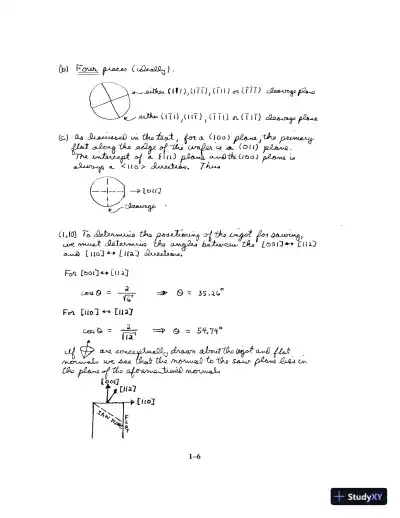 (b) Four pieces (ideally).
either (111), (1̄1̄1̄), (1̄11) or (11̄1̄) cleavage plane
either (11̄1), (111̄), (1̄11̄) or (1̄1̄1) cleavage plane
(c) As discussed in the text, for a (100) plane, the primary
flat along the edge of the wafer is a (011) plane.
The intercept of a {111} plane and the (100) plane is
always a <110> direction. Thus
→ [011]
cleavage
(1.10) To determine the positioning of the ingot for sawing,
we must determine the angles between the [001] ↔ [112]
and [110] ↔ [112] directions.
For [001] ↔ [112]
cos θ = 2/√6 ⇒ θ = 35.26°
For [110] ↔ [112]
cos θ = 2/√12 ⇒ θ = 54.74°
If are conceptually drawn about the ingot and flat
normals we see that the normal to the saw plane lies in
the plane of the aforementioned normals
[001]
[112]
[110]
SAW PLANE
FLAT
1-6
StudyXY